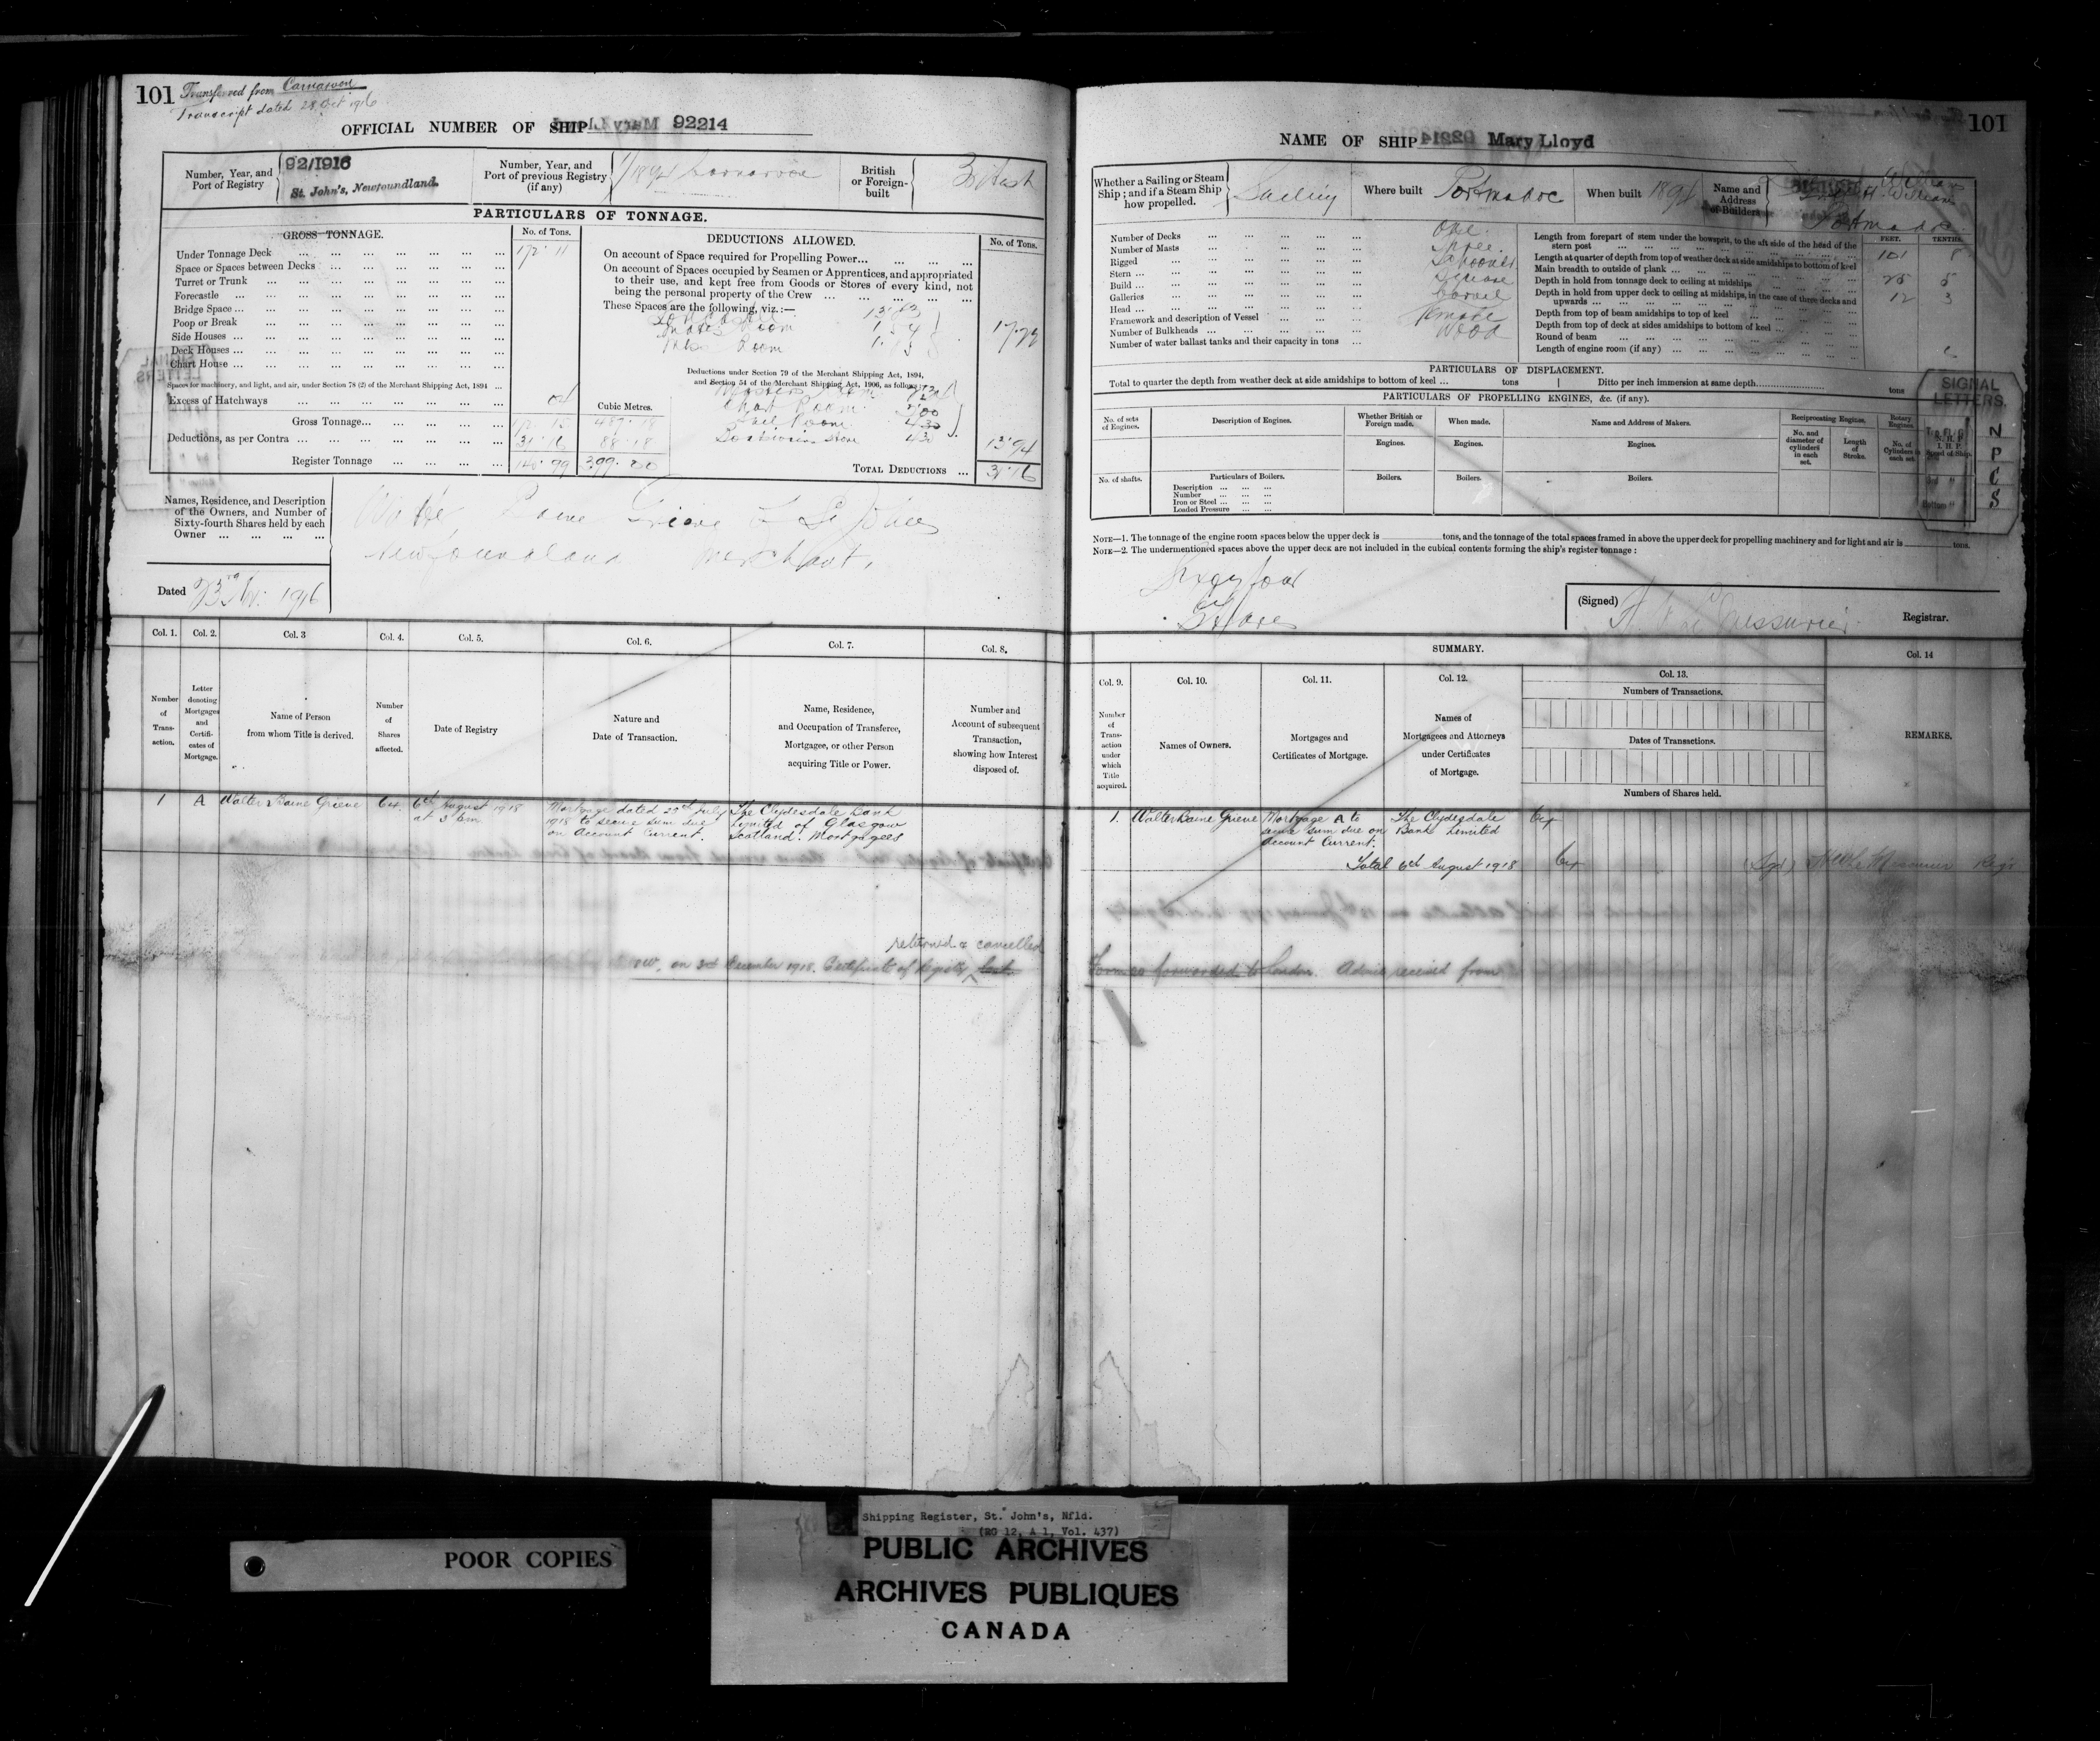 101 Transferred from Carnarvon
Transcript dated 28 Oct 1916
OFFICIAL NUMBER OF SHIP 92214
Number, Year, and Port of Registry
92/1916
St. John's, Newfoundland.
Number, Year, and Port of previous Registry (if any)
British or Foreign-built
British
PARTICULARS OF TONNAGE.
GROSS TONNAGE.
No. of Tons.
Under Tonnage Deck ... 172.11
Space or Spaces between Decks
Turret or Trunk
Forecastle
Bridge Space
Poop or Break
Side Houses
Deck Houses
Chart House
Spaces for machinery, and light, and air, under Section 78 (2) of the Merchant Shipping Act, 1894
Excess of Hatchways ... 04
Gross Tonnage... 172.15
Deductions, as per Contra ... 31.16
Register Tonnage ... 140.99
Cubic Metres.
88.18
DEDUCTIONS ALLOWED.
No. of Tons.
On account of Space required for Propelling Power...
On account of Spaces occupied by Seamen or Apprentices, and appropriated
to their use, and kept free from Goods or Stores of every kind, not
being the personal property of the Crew
These Spaces are the following, viz.:—
Mates Room
Room
Deductions under Section 79 of the Merchant Shipping Act, 1894,
and Section 54 of the Merchant Shipping Act, 1906, as follows
Masters Room
Chart Room
Sail Room
Boatswains store
TOTAL DEDUCTIONS ... 31.16
Names, Residence, and Description
of the Owners, and Number of
Sixty-fourth Shares held by each
Owner
Walter Baine Grieve of St Johns
Newfoundland Merchant,
Dated 1916
Col. 1. Col. 2. Col. 3 Col. 4. Col. 5. Col. 6. Col. 7. Col. 8.
Number of Trans-action.
Letter denoting Mortgages and Certifi-cates of Mortgage.
Name of Person from whom Title is derived.
Number of Shares affected.
Date of Registry
Nature and Date of Transaction.
Name, Residence, and Occupation of Transferee, Mortgagee, or other Person acquiring Title or Power.
Number and Account of subsequent Transaction, showing how Interest disposed of.
1 A Walter Baine Grieve 64 6th August 1918 at 3 pm
Mortgage dated 29th July 1918 to secure sum due on Account Current.
The Clydesdale Bank Limited of Glasgow Scotland. Mortgagees
returned & cancelled
on 3rd December 1918. Certificate of Registry lost
NAME OF SHIP Mary Lloyd
101
Whether a Sailing or Steam Ship; and if a Steam Ship how propelled.
Sailing
Where built
Portmadoc
When built
Name and Address of Builders
Portmadoc
Number of Decks ... One
Number of Masts ... Three
Rigged ... Schooner
Stern ... Square
Build ... Carvel
Galleries
Head ... Female
Framework and description of Vessel ... Wood
Number of Bulkheads
Number of water ballast tanks and their capacity in tons
FEET. TENTHS.
Length from forepart of stem under the bowsprit, to the aft side of the head of the stern post ... 101 8
Length at quarter of depth from top of weather deck at side amidships to bottom of keel
Main breadth to outside of plank ... 25 5
Depth in hold from tonnage deck to ceiling at midships ... 12 3
Depth in hold from upper deck to ceiling at midships, in the case of three decks and upwards
Depth from top of beam amidships to top of keel
Depth from top of deck at sides amidships to bottom of keel
Round of beam
Length of engine room (if any)
PARTICULARS OF DISPLACEMENT.
Total to quarter the depth from weather deck at side amidships to bottom of keel ... tons
Ditto per inch immersion at same depth tons
PARTICULARS OF PROPELLING ENGINES, &c. (if any).
No. of sets of Engines.
Description of Engines.
Whether British or Foreign made.
When made.
Name and Address of Makers.
Reciprocating Engines.
Rotary Engines
No. and diameter of cylinders in each set.
Length of Stroke.
No. of Cylinders in each set.
Engines. Engines. Engines.
No. of shafts.
Particulars of Boilers.
Description
Number
Iron or Steel
Loaded Pressure
Boilers. Boilers. Boilers.
SIGNAL LETTERS.
N
P
C
S
NOTE—1. The tonnage of the engine room spaces below the upper deck is tons, and the tonnage of the total spaces framed in above the upper deck for propelling machinery and for light and air is tons.
NOTE—2. The undermentioned spaces above the upper deck are not included in the cubical contents forming the ship's register tonnage :
Sixty four
Shares
(Signed) Registrar.
SUMMARY.
Col. 9. Col. 10. Col. 11. Col. 12. Col. 13. Col. 14
Number of Trans-action under which Title acquired.
Names of Owners.
Mortgages and Certificates of Mortgage.
Names of Mortgagees and Attorneys under Certificates of Mortgage.
Numbers of Transactions.
Dates of Transactions.
Numbers of Shares held.
REMARKS.
1. Walter Baine Grieve
Mortgage A to secure sum due on Account Current.
The Clydesdale Bank Limited
64
Total 6th August 1918 64
Form 20 forwarded to London. Advice received from
POOR COPIES
Shipping Register, St. John's, Nfld.
(RG 12, A 1, Vol. 437)
PUBLIC ARCHIVES
ARCHIVES PUBLIQUES
CANADA